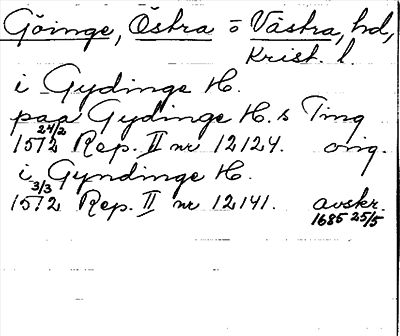 Göinge, Östra o Västra, hd,
Krist. l.
i Gydinge H.
paa Gydinge H.s Ting
1572 24/2 Rep. II nr 12124. orig.
i Gyndinge H.
1572 3/3 Rep. II nr 12141. avskr.
1685 25/5